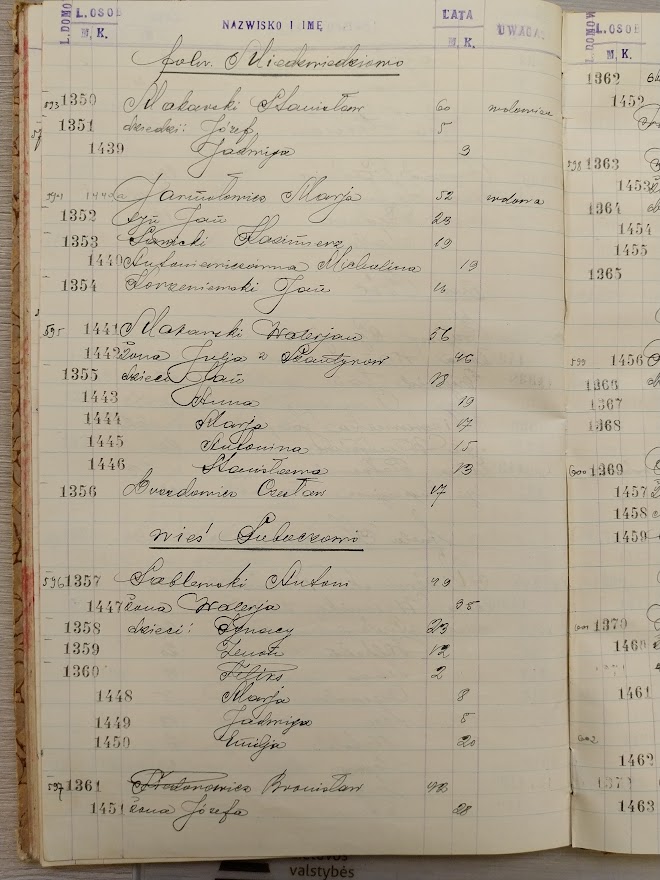 L. DOMO L. OSÓB NAZWISKO I IMĘ LATA UWAGA:
M, K. M, K.
folw. Miedzwiedziowo
593 1350 Makarski Stanisław 60 wdowiec
1351 dzieci: Józef 5
1439 Jadwiga 3
594 Jarmołowicz Marja 52 wdowa
1352 syn Jan 23
1353 Kazimierz 19
1440 Antoniewiczówna Michalina 19
1354 Korzeniewski Jan
595 1441 Makarski Walerjan 56
1442 żona Julja z 46
1355 dzieci Jan 18
1443 Anna 19
1444 Marja 17
1445 Antonina 15
1446 Stanisława 13
1356 Czesław 17
wieś
596 1357 Antoni 49
1447 żona Walerja 35
1358 dzieci: Ignacy 23
1359 Zenon 12
1360 Feliks 2
1448 Marja 8
1449 Jadwiga 5
1450 Emilja 20
597 1361 Bronisław 42
1451 żona Józefa 28
L. DOMOW L. OSÓB
M, K.
1362
1452
598 1363
1453
1364
1454
1455
1365
599 1456
1366
1367
1368
600 1369
1457
1458
1459
601 1370
1460
1461
602
1462
1463
valstybės